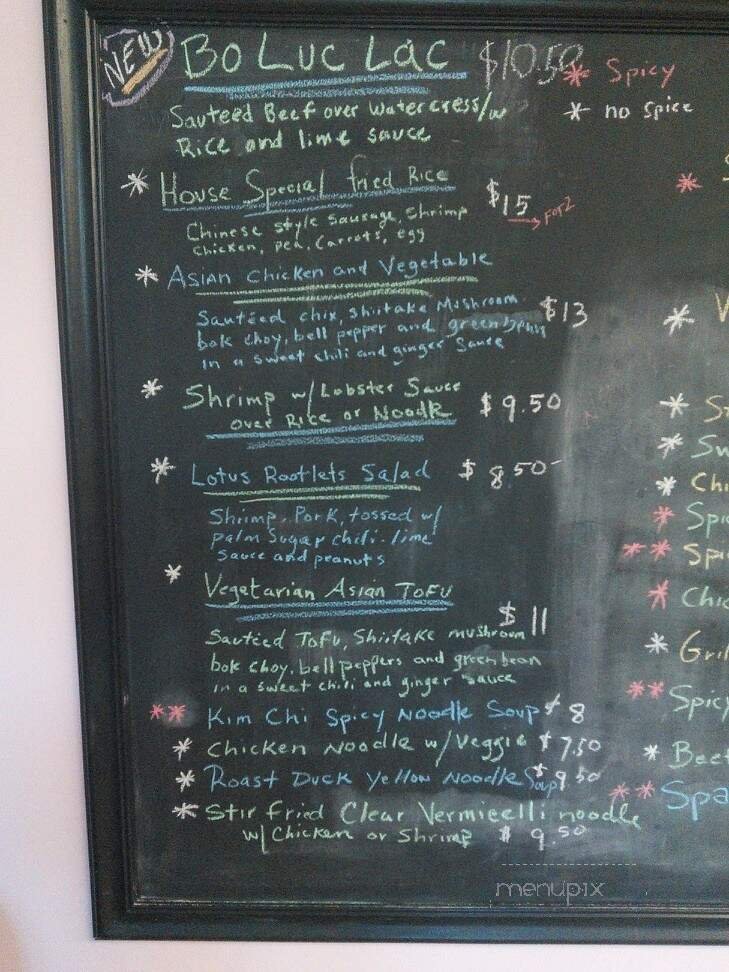 NEW
Bo Luc Lac $10.50
* Spicy
* no Spice
Sauteed Beef over Watercress/w
Rice and lime sauce
* House Special fried Rice $15 → For 2
Chinese style Sausage, Shrimp
chicken, pea, Carrots, egg
* Asian Chicken and Vegetable
Sautéed chix, shiitake Mushroom $13
bok choy, bell pepper and green beans
in a sweet chili and ginger sauce
* Shrimp w/ Lobster Sauce $9.50
over Rice or Noodle
* Lotus Rootlets Salad $8.50
Shrimp, Pork, tossed w/
palm sugar chili. lime
sauce and peanuts
* Vegetarian Asian Tofu
$11
Sautéed Tofu, Shiitake mushroom
bok choy, bell peppers and green bean
in a sweet chili and ginger sauce
** Kim Chi Spicy Noodle Soup $8
* Chicken Noodle w/ Veggie $7.50
* Roast Duck Yellow Noodle Soup $9.50
* Stir fried Clear Vermicelli noodle
w/ Chicken or Shrimp $9.50
*
*
*
*
* Chi
* Spi
** Spi
* Chic
* Gril
** Spicy
* Beef
** Spa
menupix